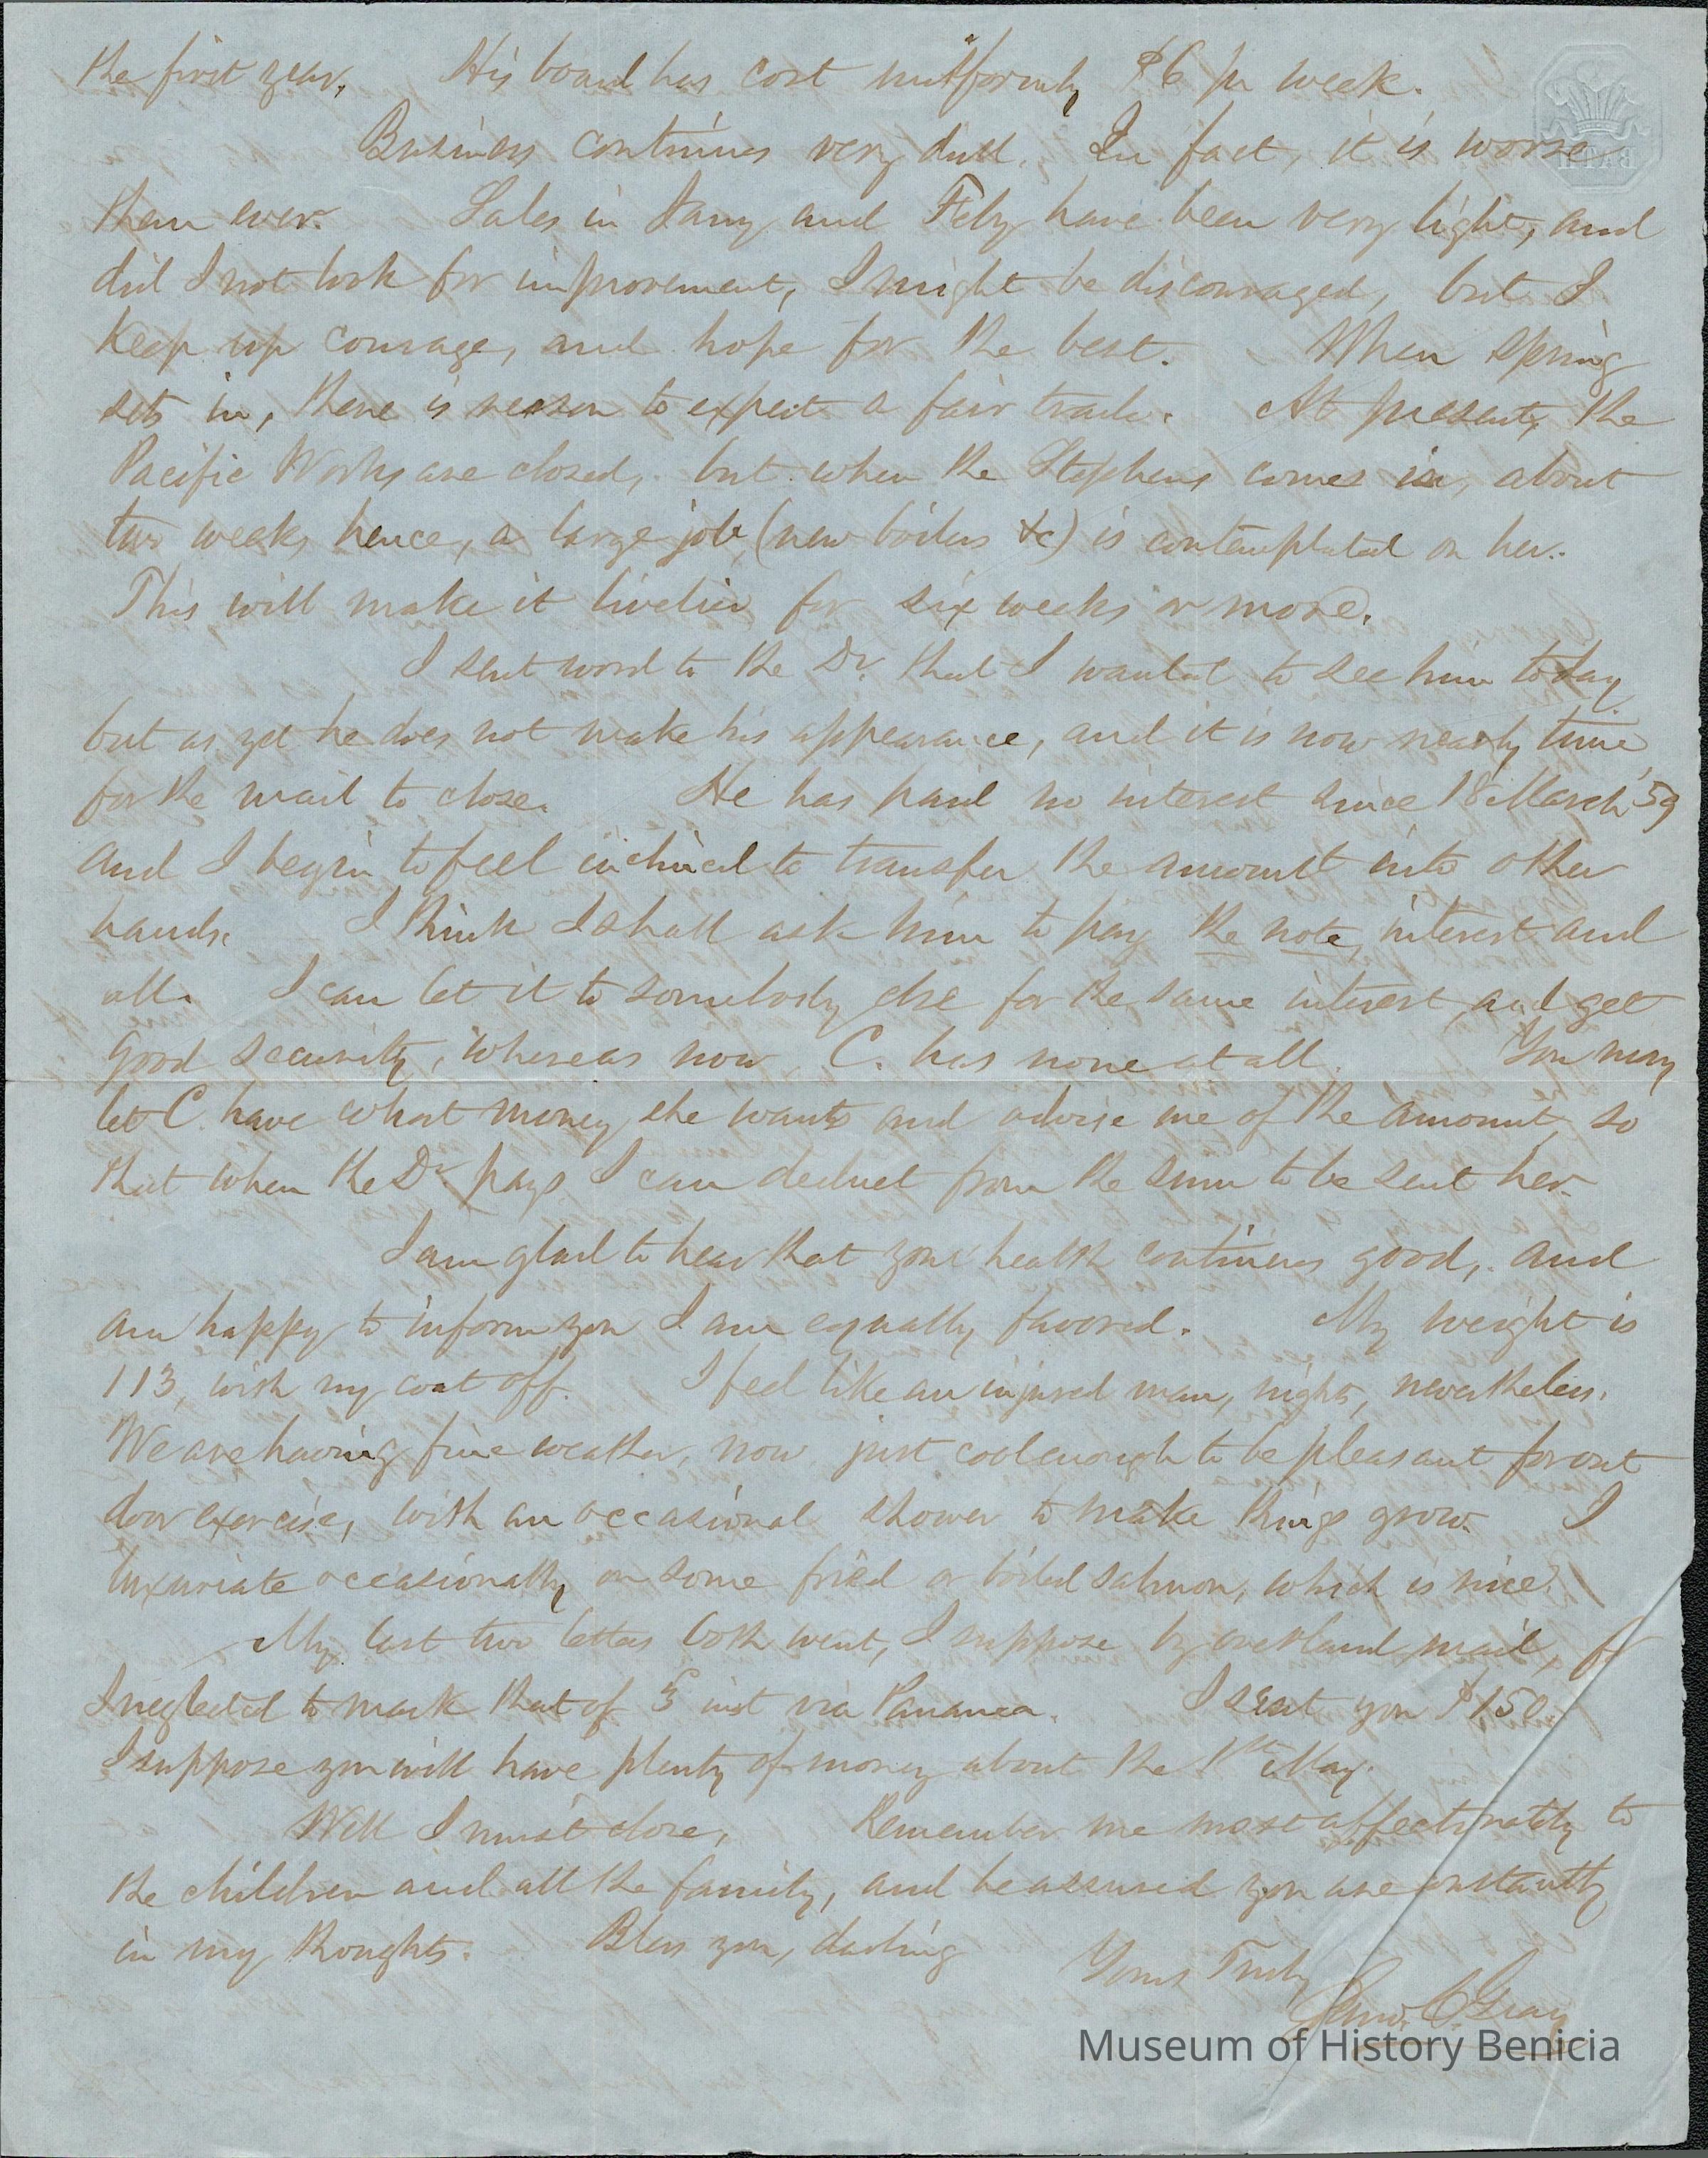 the first year. His board has cost uniformly $6 pr week.
Business continues very dull. In fact, it is worse
than ever. Sales in Jany and Feby have been very light, and
did I not look for improvement, I might be discouraged, but I
keep up courage, and hope for the best. When spring
sets in, there is reason to expect a fair trade. At present, the
Pacific Works are closed, but when the Stephens comes in, about
two weeks hence, a large job (new boilers &c) is contemplated on her.
This will make it livelier for six weeks or more.
I sent word to the Dr. that I wanted to see him today
but as yet he does not make his appearance, and it is now nearly time
for the mail to close. He has paid no interest since 18 March '59
and I begin to feel inclined to transfer the amount into other
hands. I think I shall ask him to pay the note, interest and
all. I can let it to somebody else for the same interest, and get
good security, whereas now C. has none at all. You may
let C. have what money she wants and advise me of the amount, so
that when the Dr. pays I can deduct from the sum to be sent her.
I am glad to hear that your health continues good, and
am happy to inform you I am equally favored. My weight is
113, with my coat off. I feel like an injured man, nights, nevertheless.
We are having fine weather, now just cool enough to be pleasant for out
door exercise, with an occasional shower to make things grow. I
luxuriate occasionally on some fried or broiled salmon, which is nice.
My last two letters both went, I suppose by overland mail, for
I neglected to mark that of 5 inst via Panama. I sent you $150.
I suppose you will have plenty of money about the 1st May.
Well I must close, Remember me most affectinately to
the children and all the family, and be assured you are constantly
in my thoughts. Bless you, darling
Yours Truly
C. Gray
BATH
Museum of History Benicia